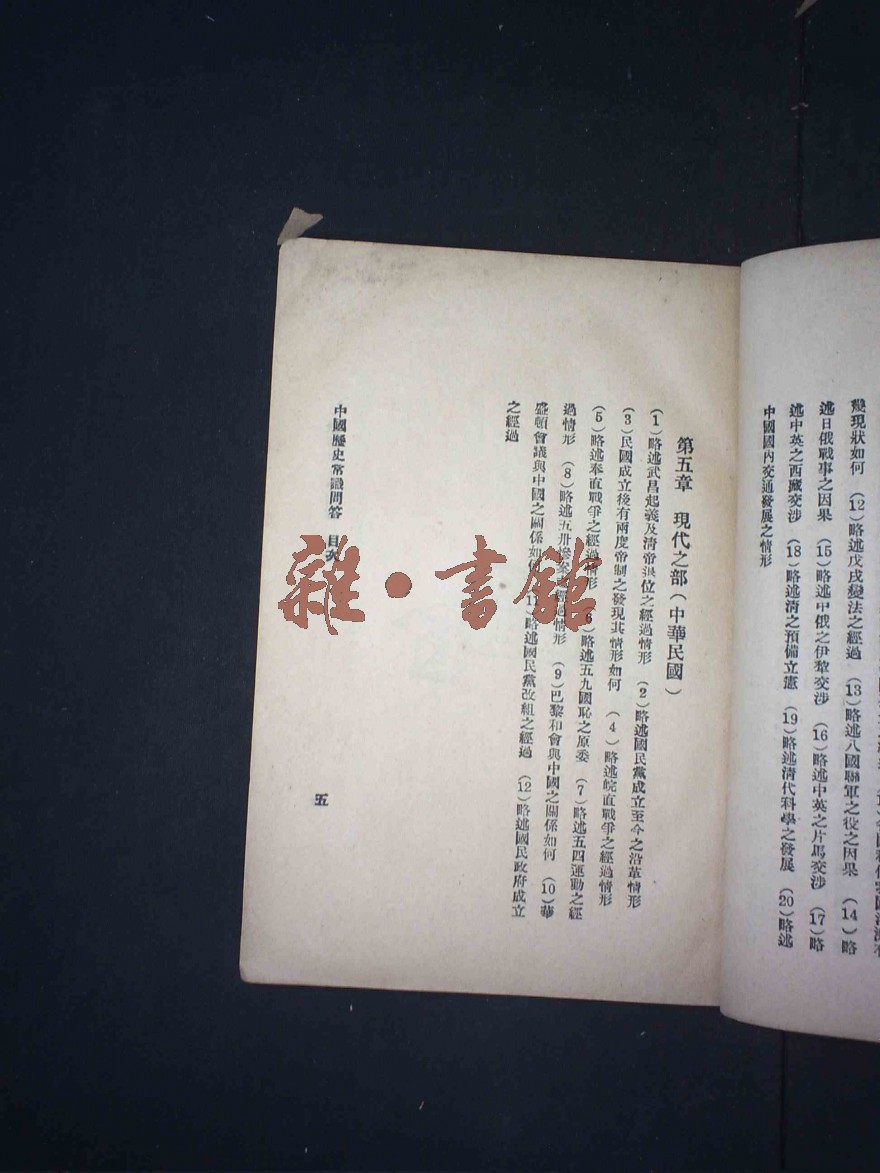 幾現狀如何 (12)略述戊戌變法之經過 (13)略述八國聯軍之役之因果 (14)略
述日俄戰事之因果 (15)略述中俄之伊犂交涉 (16)略述中英之片馬交涉 (17)略
述中英之西藏交涉 (18)略述清之預備立憲 (19)略述清代科學之發展 (20)略述
中國國內交通發展之情形
第五章 現代之部(中華民國)
(1)略述武昌起義及清帝退位之經過情形 (2)略述國民黨成立至今之沿革情形
(3)民國成立後有兩度帝制之發現其情形如何 (4)略述皖直戰爭之經過情形
(5)略述奉直戰爭之經過情形 (6)略述五九國恥之原委 (7)略述五四運動之經
過情形 (8)略述五卅慘案之經過情形 (9)巴黎和會與中國之關係如何 (10)華
盛頓會議與中國之關係如何 (11)略述國民黨改組之經過 (12)略述國民政府成立
之經過
中國歷史常識問答 目次
五
雜·書館